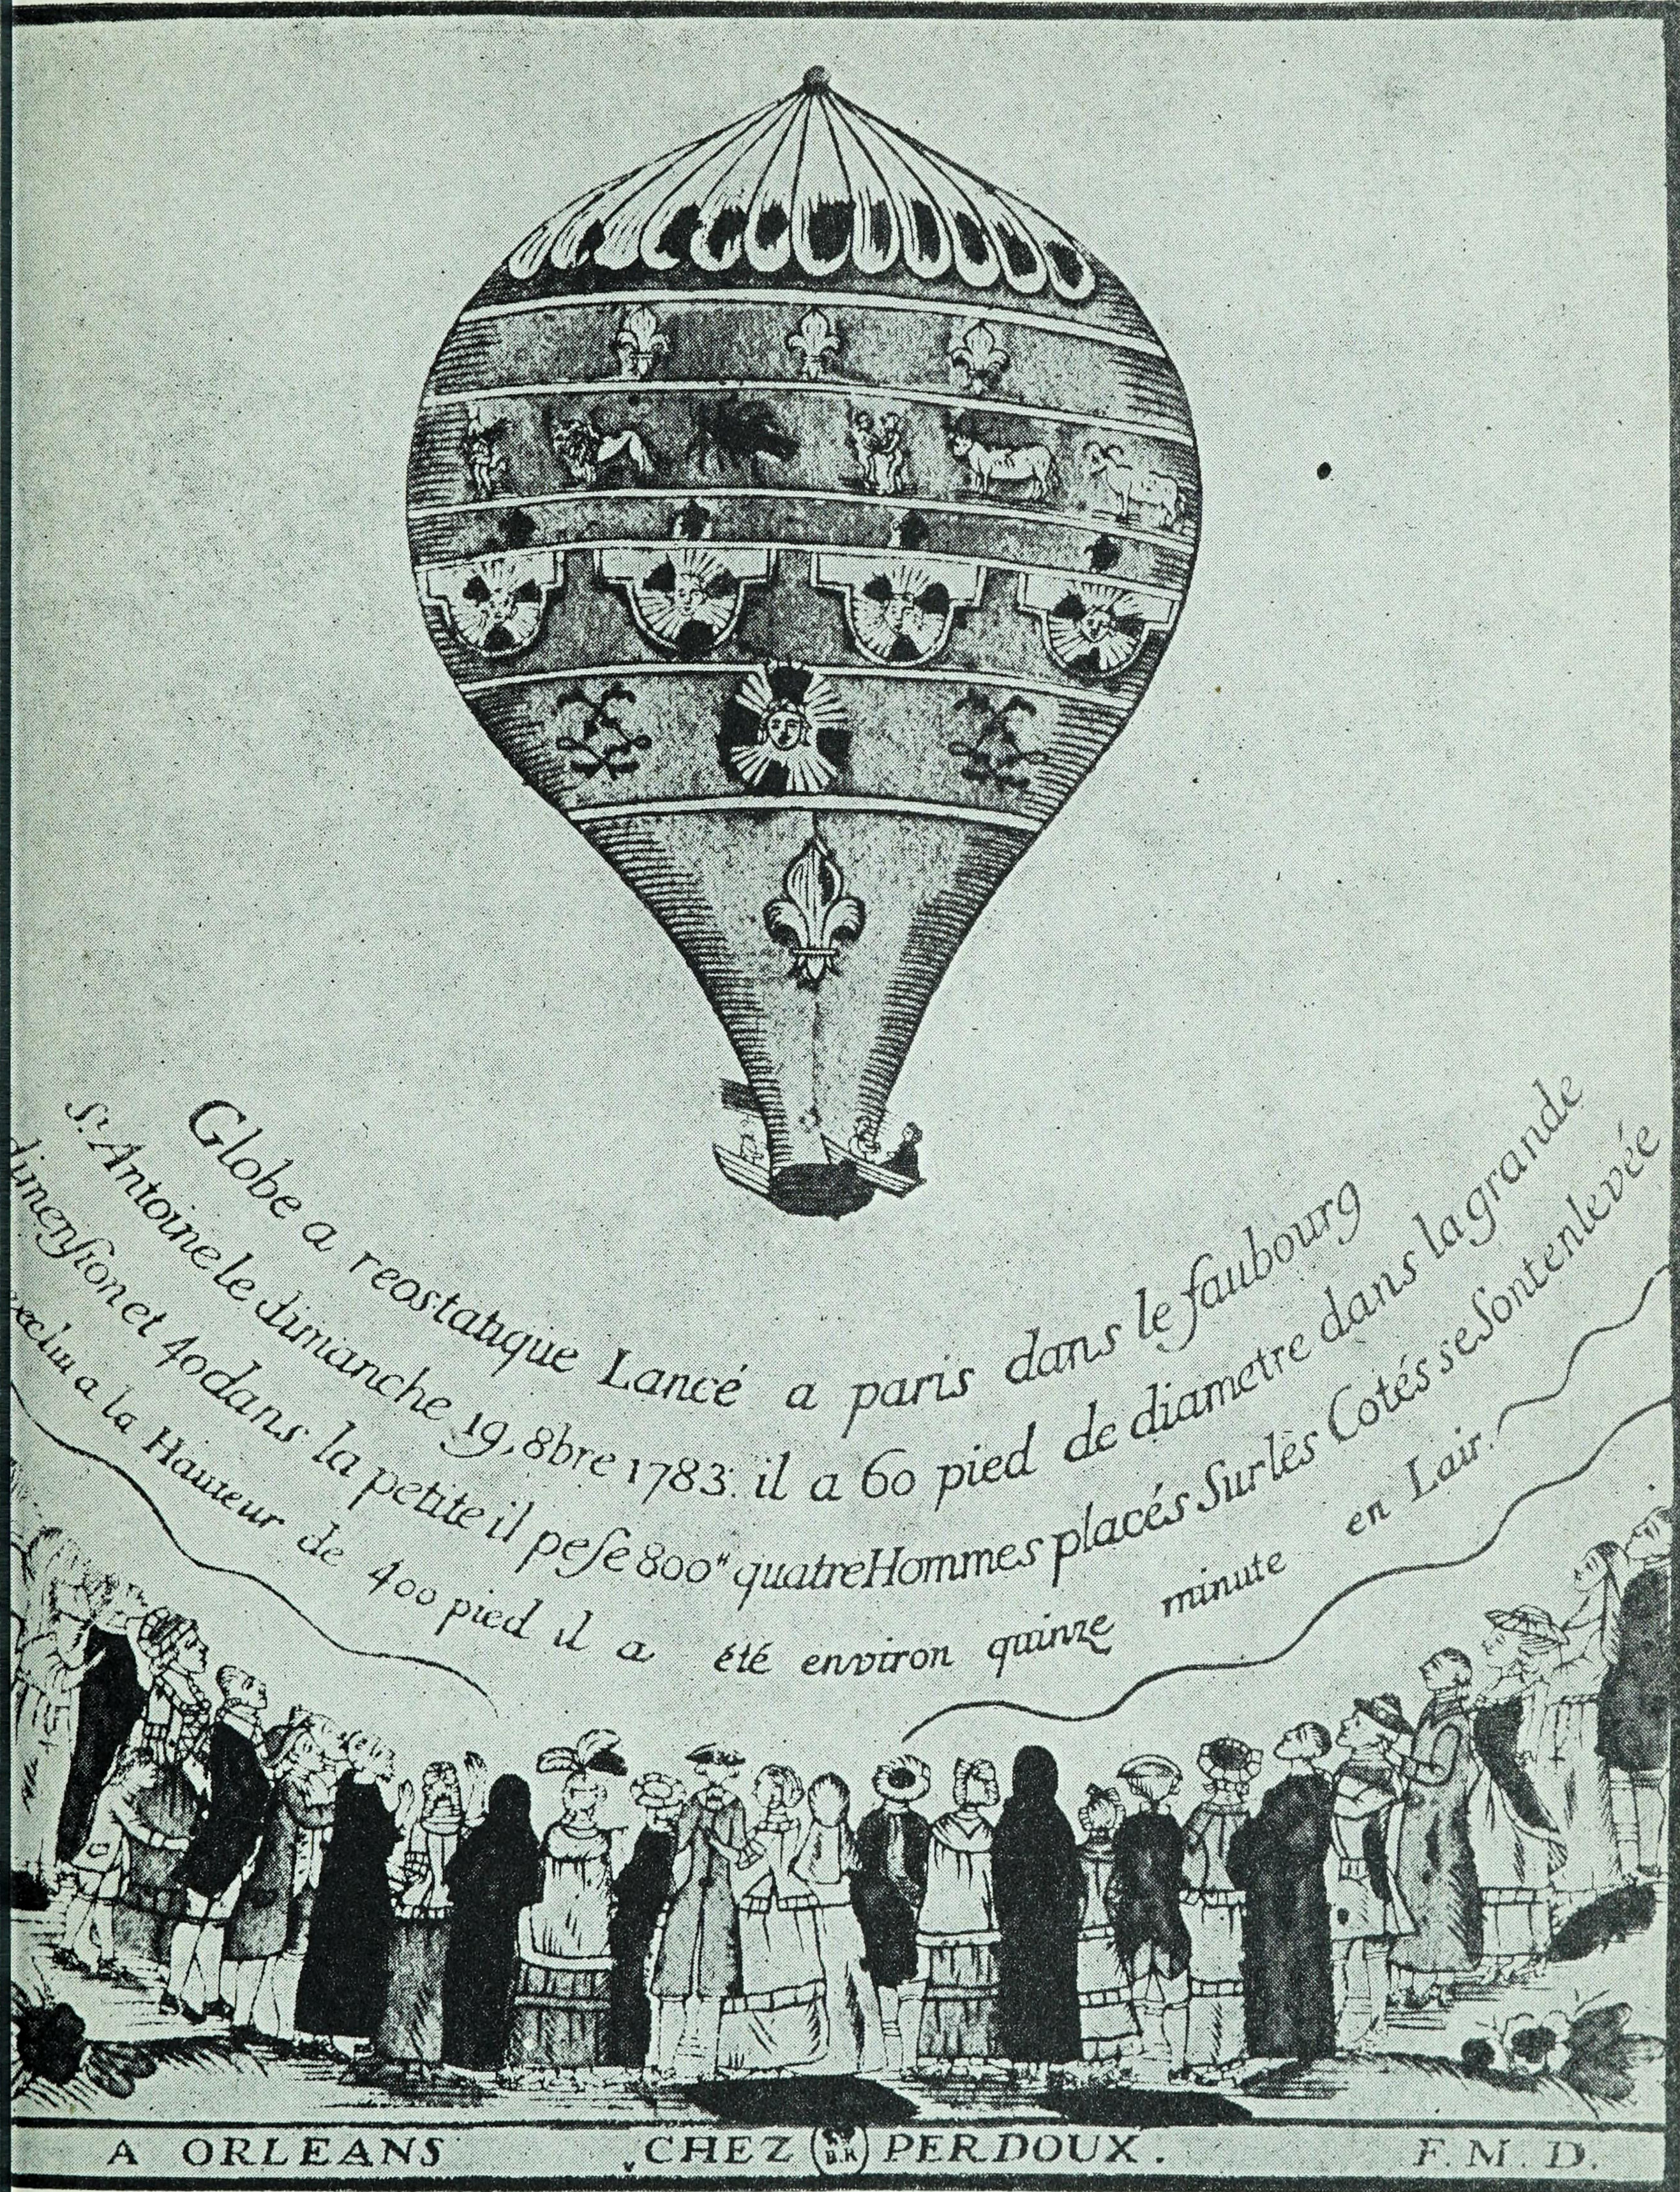 Globe a reostatique Lancé a paris dans le faubourg
S.t Antoine le dimanche 19, 8bre 1783. il a 60 pied de diametre dans la grande
dimenſion et 40 dans la petite il peſe 800" quatre Hommes placés Sur les Cotés se Sont enlevée
a la Hauteur de 400 pied il a été environ quinze minute en Lair.
A ORLEANS CHEZ PERDOUX. F. M. D.